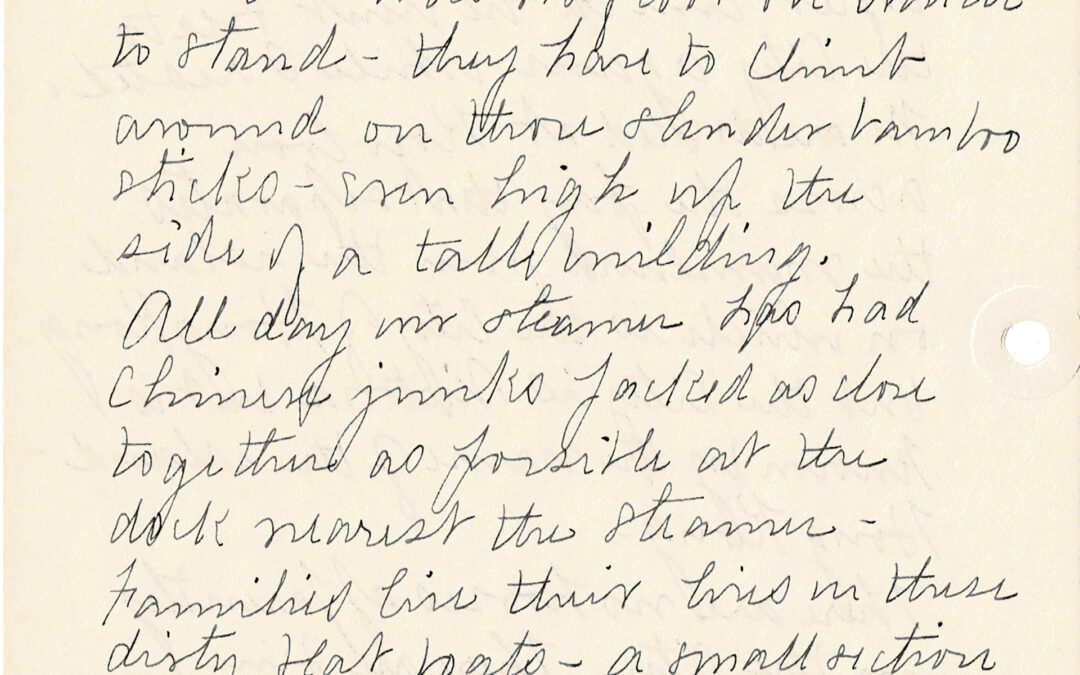 to stand - they have to climb
around on those slender bamboo
sticks - even high up the
side of a tall building.
All day our steamer has had
Chinese junks packed as close
together as possible at the
dock nearest the steamer -
Families live their lives in these
dirty flat boats - a small section